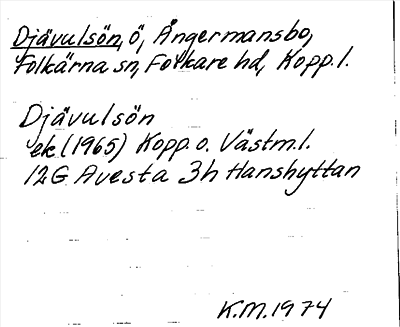 Djävulsön, ö, Ångermansbo,
Folkärna sn, Folkare hd, Kopp. l.
Djävulsön
ek. (1965) Kopp. o. Västm. l.
12G Avesta 3h Hanshyttan
K.M. 1974